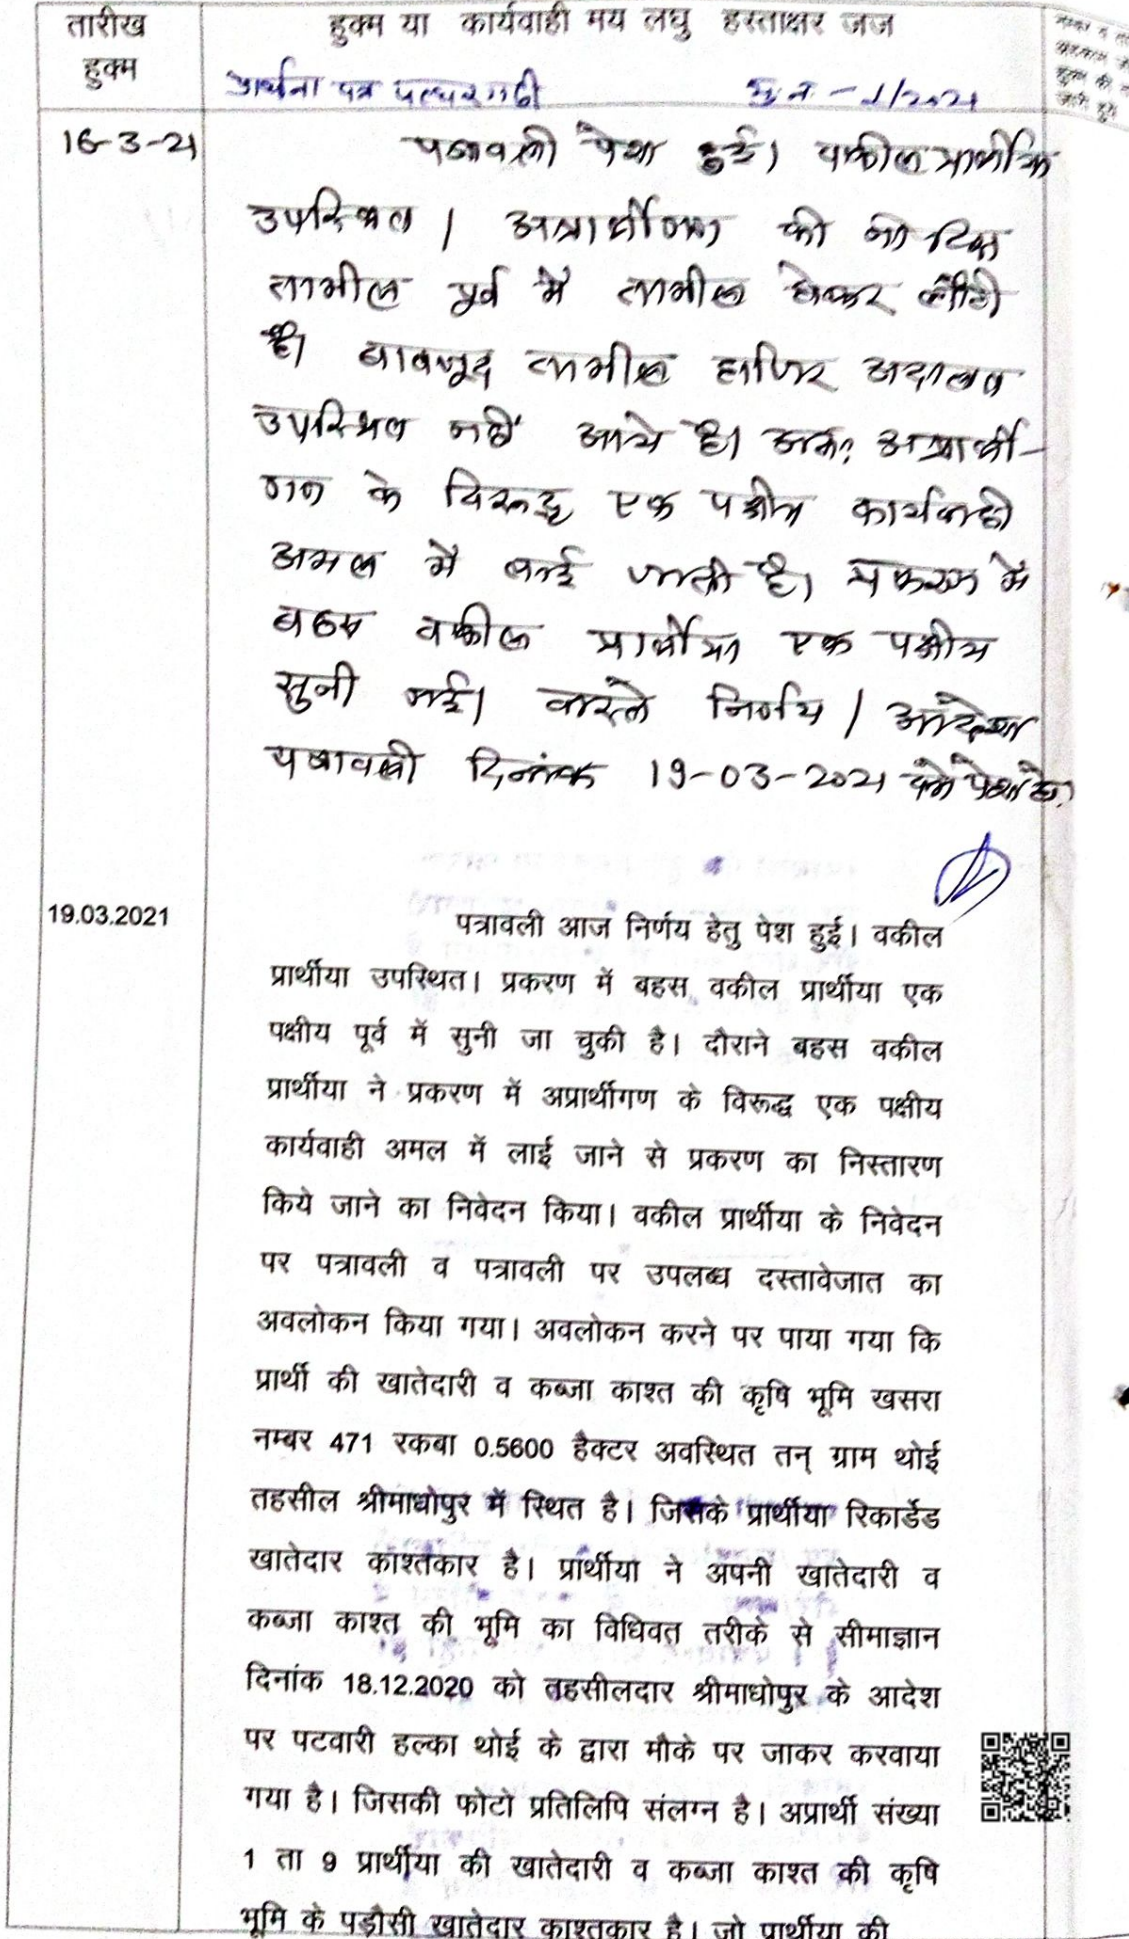 तारीख
हुक्म
हुक्म या कार्यवाही मय लघु हस्ताक्षर जज
प्रार्थना पत्र पत्थरगढी मु न - 1/2021
16-3-21
पत्रावली पेश हुई। वकील प्रार्थीया
उपस्थित। अप्रार्थीगण की नोटिस
तामील पूर्व में तामील होकर लौटी
है। बावजूद तामील हाजिर अदालत
उपस्थित नहीं आये है। अतः अप्रार्थी-
गण के विरूद्ध एक पक्षीय कार्यवाही
अमल में लाई जाती है। प्रकरण में
बहस वकील प्रार्थीया एक पक्षीय
सुनी गई। वास्ते निर्णय / आदेश
पत्रावली दिनांक 19-03-2021 को पेश हो।
19.03.2021
पत्रावली आज निर्णय हेतु पेश हुई। वकील
प्रार्थीया उपस्थित। प्रकरण में बहस वकील प्रार्थीया एक
पक्षीय पूर्व में सुनी जा चुकी है। दौराने बहस वकील
प्रार्थीया ने प्रकरण में अप्रार्थीगण के विरूद्ध एक पक्षीय
कार्यवाही अमल में लाई जाने से प्रकरण का निस्तारण
किये जाने का निवेदन किया। वकील प्रार्थीया के निवेदन
पर पत्रावली व पत्रावली पर उपलब्ध दस्तावेजात का
अवलोकन किया गया। अवलोकन करने पर पाया गया कि
प्रार्थी की खातेदारी व कब्जा काश्त की कृषि भूमि खसरा
नम्बर 471 रकबा 0.5600 हैक्टर अवस्थित तन् ग्राम थोई
तहसील श्रीमाधोपुर में स्थित है। जिसके प्रार्थीया रिकार्डेड
खातेदार काश्तकार है। प्रार्थीया ने अपनी खातेदारी व
कब्जा काश्त की भूमि का विधिवत तरीके से सीमाज्ञान
दिनांक 18.12.2020 को तहसीलदार श्रीमाधोपुर के आदेश
पर पटवारी हल्का थोई के द्वारा मौके पर जाकर करवाया
गया है। जिसकी फोटो प्रतिलिपि संलग्न है। अप्रार्थी संख्या
1 ता 9 प्रार्थीया की खातेदारी व कब्जा काश्त की कृषि
भूमि के पड़ौसी खातेदार काश्तकार है। जो प्रार्थीया की